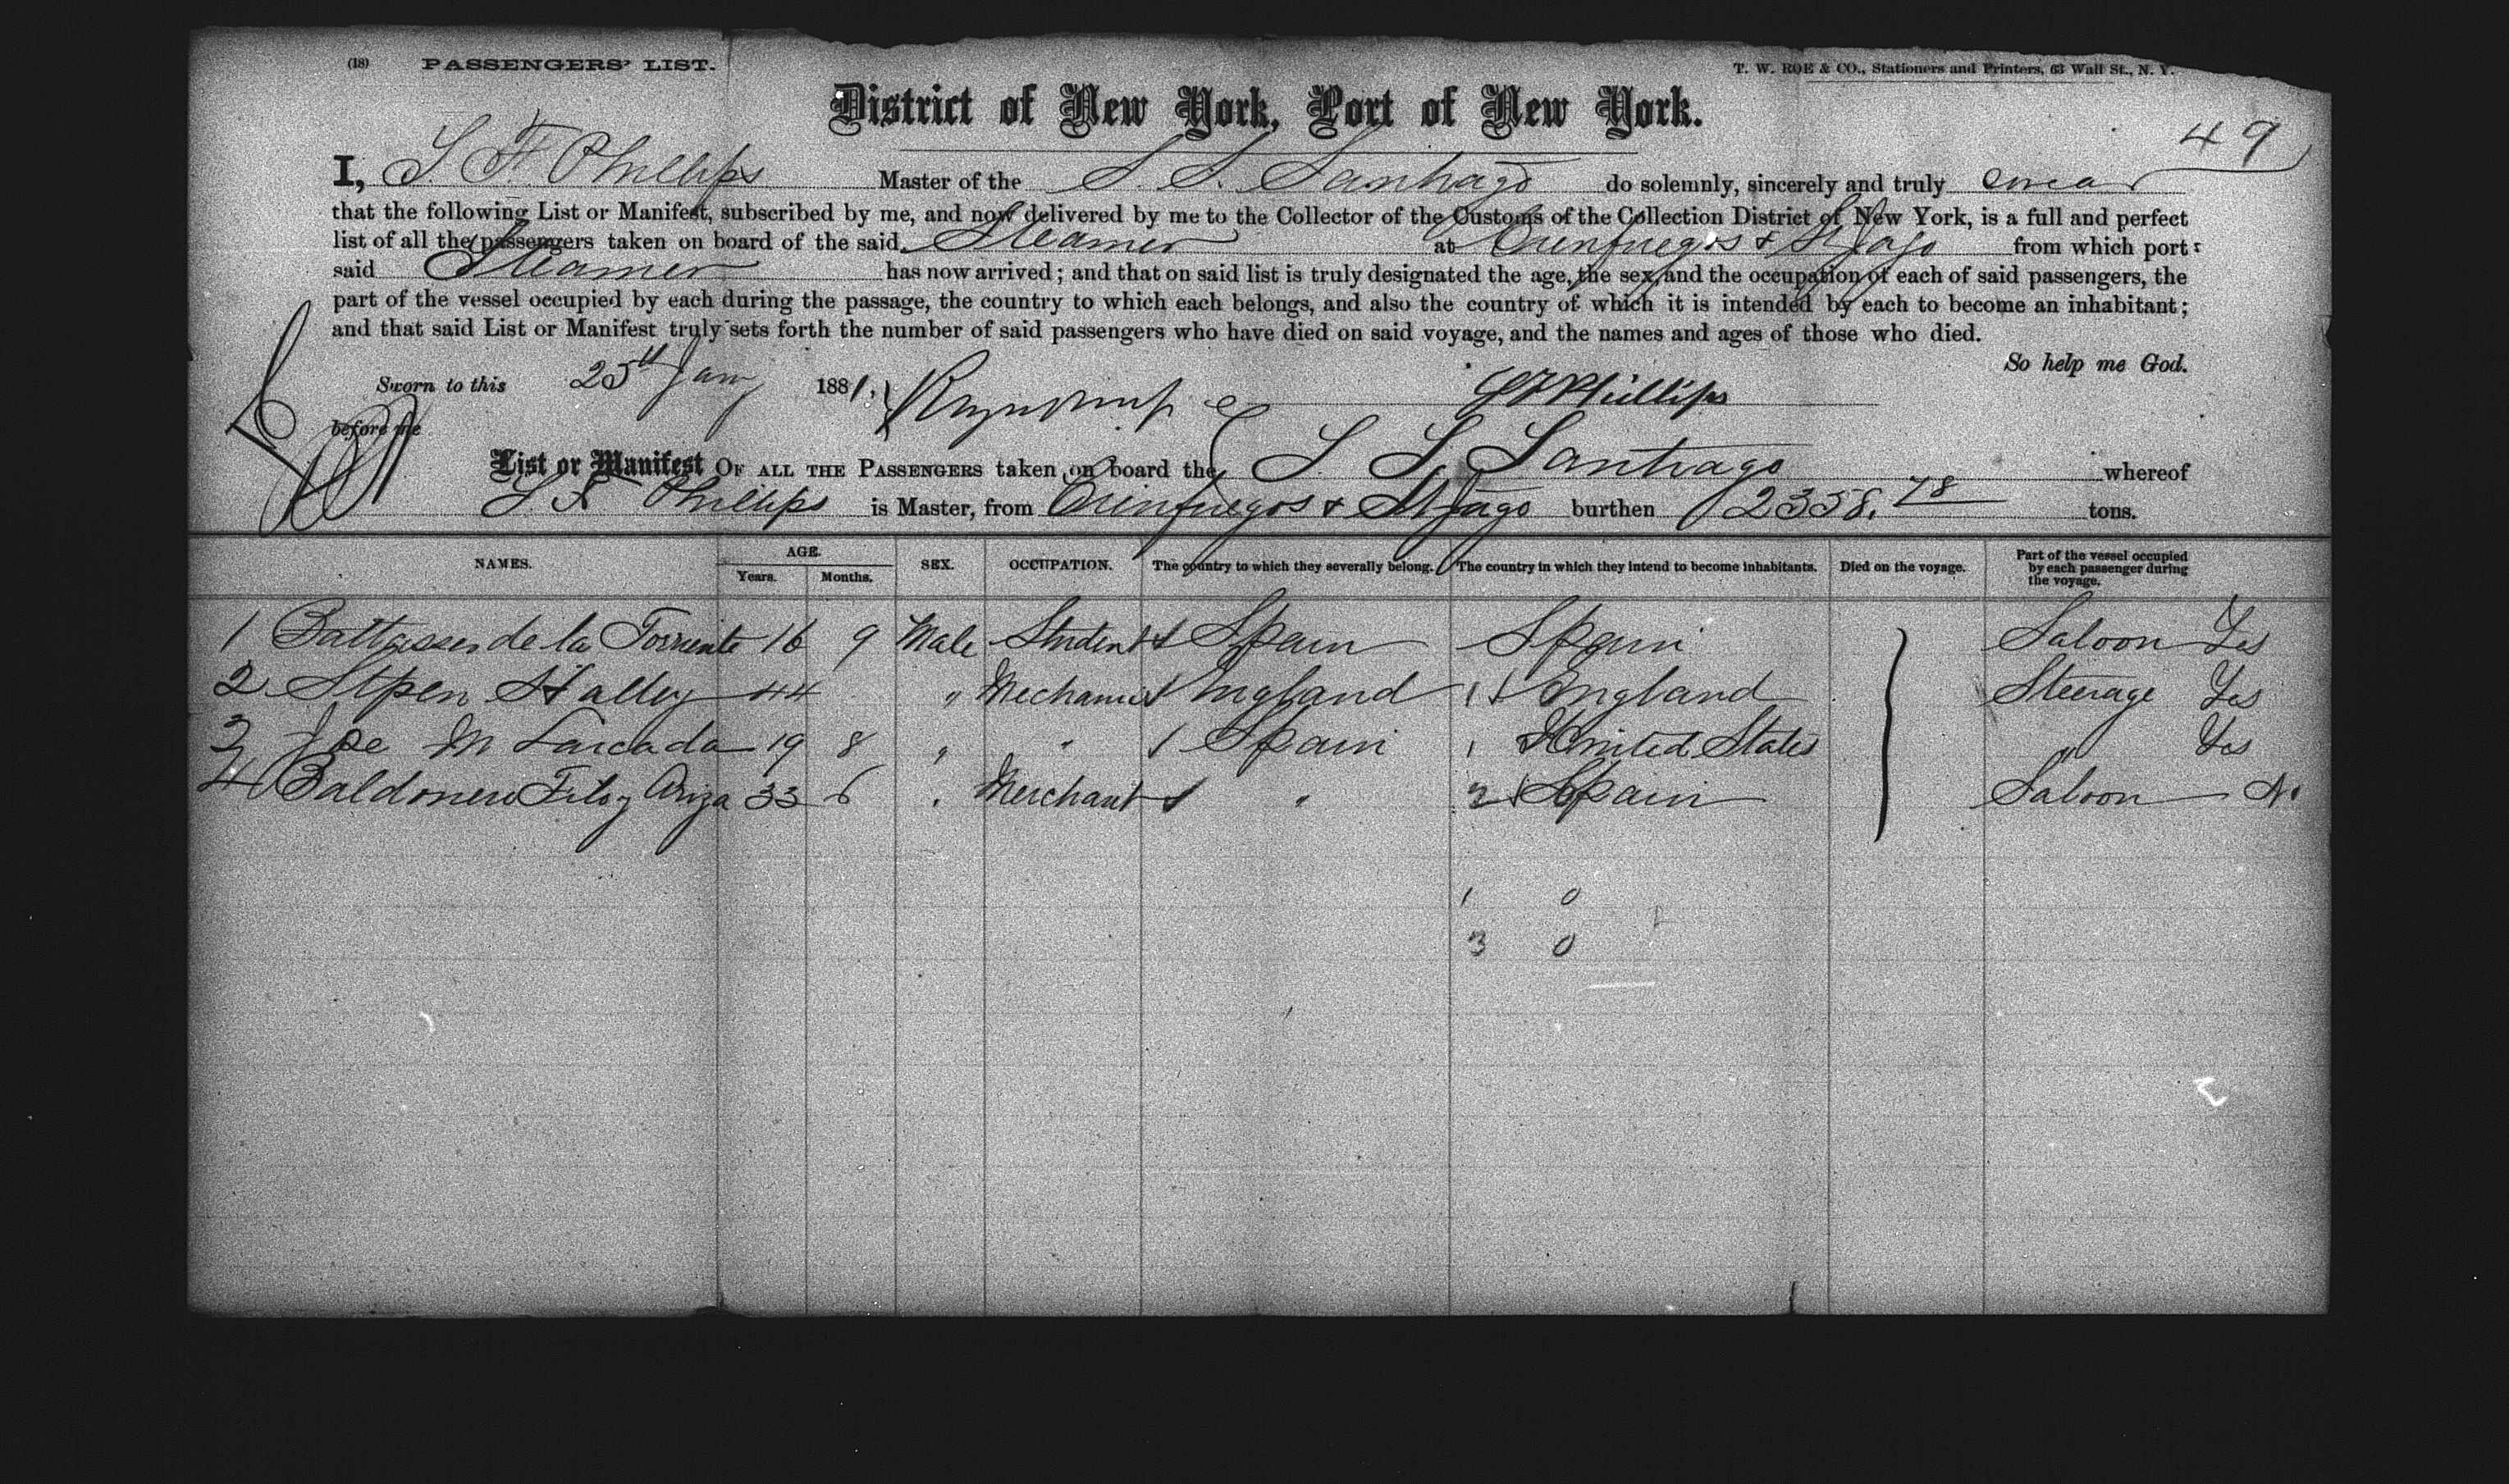 (18) PASSENGERS' LIST.
T. W. ROE & CO., Stationers and Printers, 63 Wall St., N. Y.
District of New York, Port of New York.
49
I, S F Phillips Master of the S. S. Santiago do solemnly, sincerely and truly swear
that the following List or Manifest, subscribed by me, and now delivered by me to the Collector of the Customs of the Collection District of New York, is a full and perfect
list of all the passengers taken on board of the said Steamer at Cienfuegos & St Jago from which port
said Steamer has now arrived; and that on said list is truly designated the age, the sex, and the occupation of each of said passengers, the
part of the vessel occupied by each during the passage, the country to which each belongs, and also the country of which it is intended by each to become an inhabitant;
and that said List or Manifest truly sets forth the number of said passengers who have died on said voyage, and the names and ages of those who died.
So help me God.
Sworn to this 25th Jany 1881,
S F Phillips
before me
List or Manifest OF ALL THE PASSENGERS taken on board the S. S. Santiago whereof
S F Phillips is Master, from Cienfuegos & St Jago burthen 2358.78 tons.
NAMES. AGE. Years. Months. SEX. OCCUPATION. The country to which they severally belong. The country in which they intend to become inhabitants. Died on the voyage. Part of the vessel occupied by each passenger during the voyage.
1 de la Torriente 16 9 Male Student Spain Spain Saloon Yes
2 Stpen Halley 44 " Mechanic England 1 England Steerage Yes
3 Jose M 19 8 " " Spain 1 United States " Yes
4 Baldomero Ariza 33 6 " Merchant " 2 Spain Saloon No
1 0
3 0